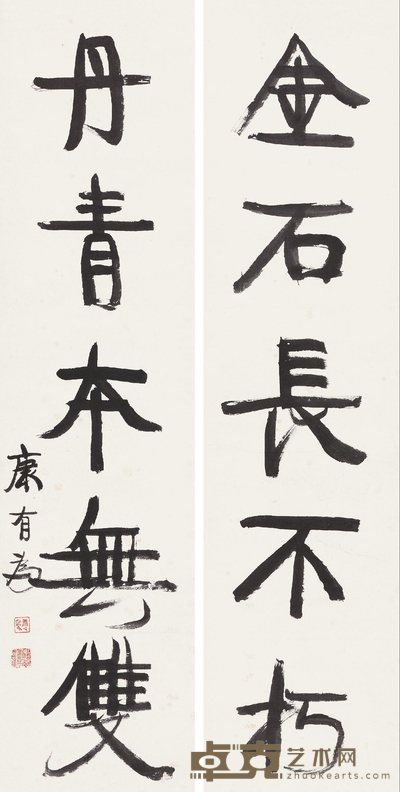 金石長不朽
丹青本無雙
康有為
卓克艺术网
zhuokearts.com